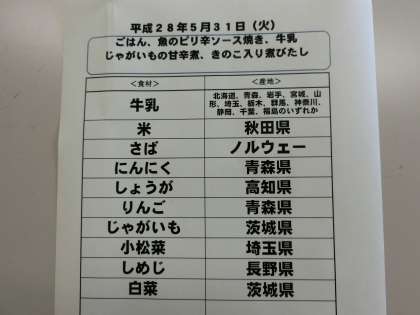 平成28年5月31日（火）
ごはん、魚のピリ辛ソース焼き、牛乳
じゃがいもの甘辛煮、きのこ入り煮びたし
＜食材＞ ＜産地＞
牛乳 北海道、青森、岩手、宮城、山
形、埼玉、栃木、群馬、神奈川、
静岡、千葉、福島のいずれか
米 秋田県
さば ノルウェー
にんにく 青森県
しょうが 高知県
りんご 青森県
じゃがいも 茨城県
小松菜 埼玉県
しめじ 長野県
白菜 茨城県